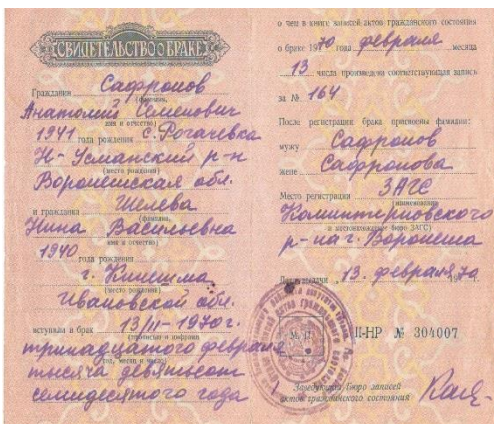 СВИДЕТЕЛЬСТВО О БРАКЕ
Гражданин Сафронов
(фамилия,
Анатолий Семенович
имя и отчество)
1941 года рождения с. Рогачевка
Н-Усманский р-н
(место рождения)
Воронежская обл.
и гражданка Шелева
(фамилия,
Нина Васильевна
имя и отчество)
1940 года рождения
г. Кинешма
(место рождения)
Ивановской обл.
вступили в брак 13/II-1970г.
(прописью и цифрами
тринадцатого февраля
год, месяц и число)
тысяча девятьсот
семидесятого года
о чем в книге записей актов гражданского состояния
о браке 1970 года февраля месяца
13 числа произведена соответствующая запись
за № 164
После регистрации брака присвоены фамилии:
мужу Сафронов
жене Сафронова
Место регистрации ЗАГС
(наименование
Коминтерновского
и местонахождение бюро ЗАГС)
р-на г. Воронежа
выдачи 13. февраля 70
II-НР № 304007
Заведующий бюро записей
актов гражданского состояния